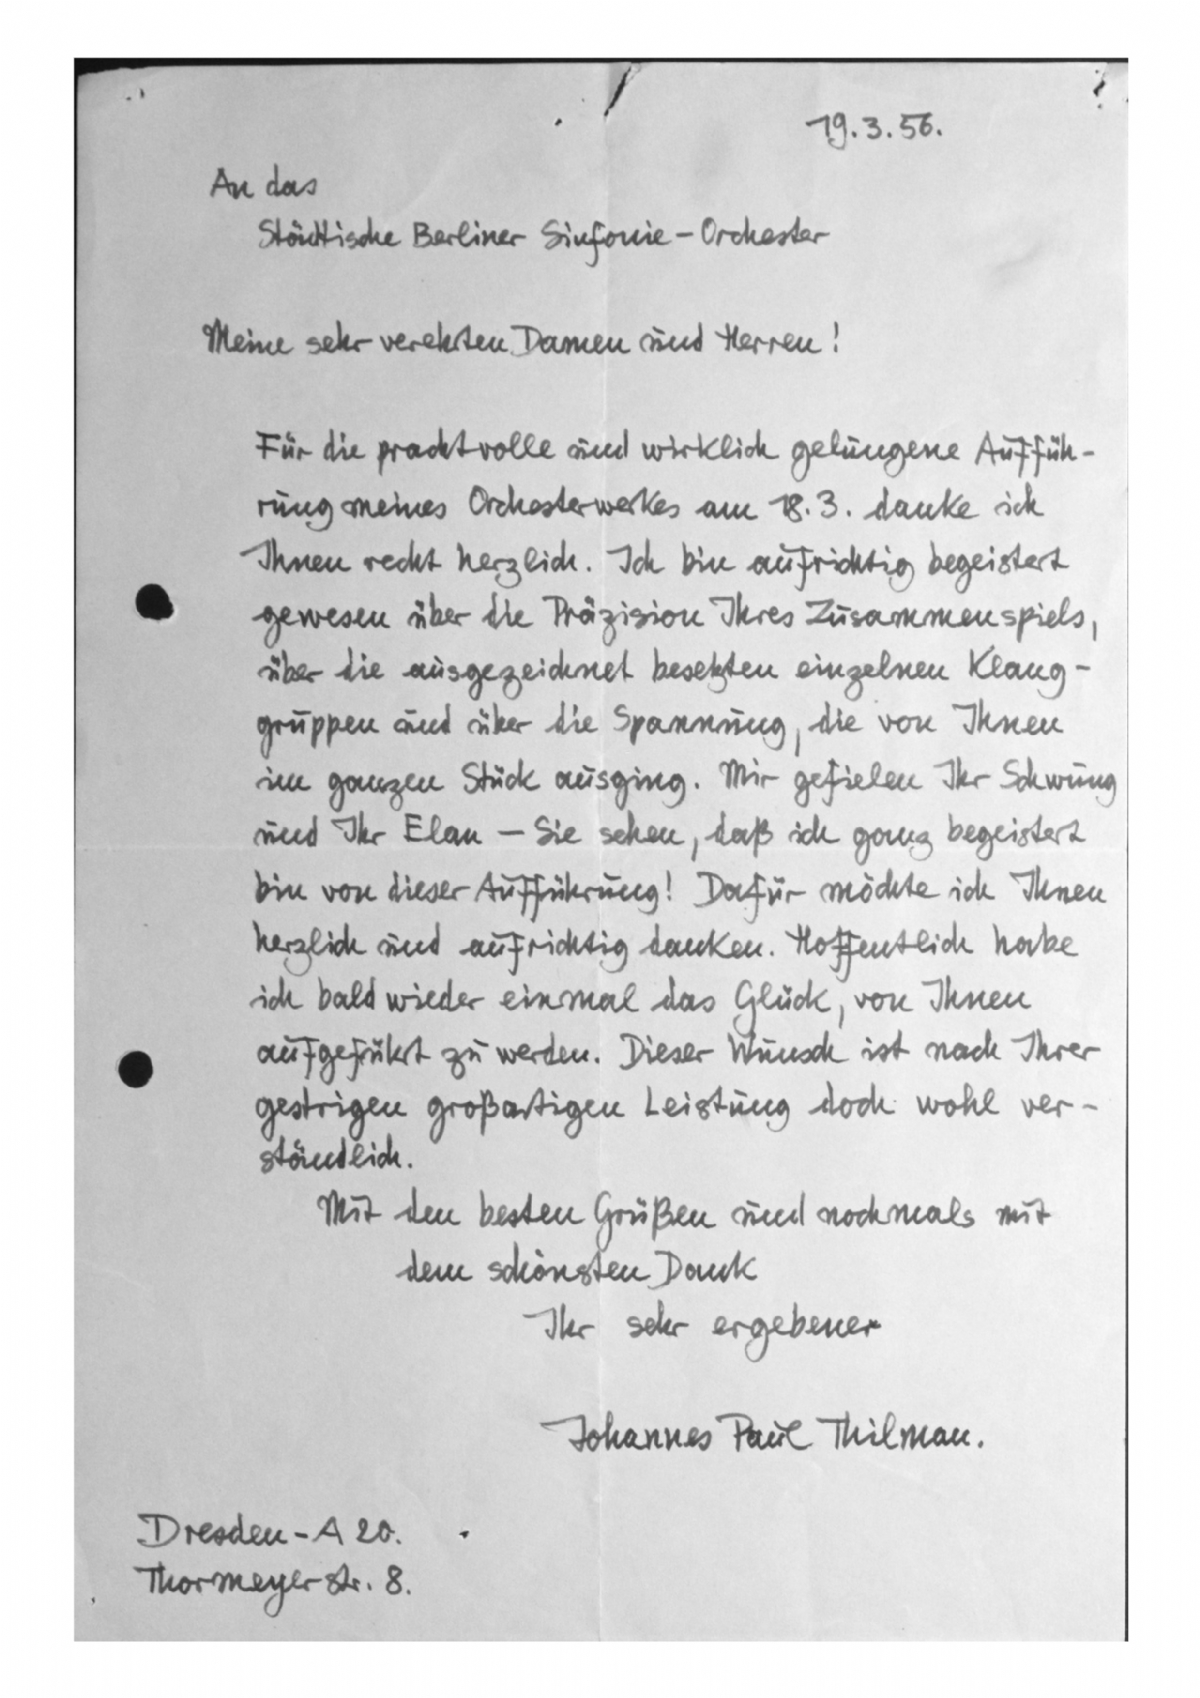 19.3.56.
An das
Städtische Berliner Sinfonie-Orchester
Meine sehr verehrten Damen und Herren!
Für die prachtvolle und wirklich gelungene Auffüh-
rung meines Orchesterwerkes am 18.3. danke ich
Ihnen recht herzlich. Ich bin aufrichtig begeistert
gewesen über die Präzision Ihres Zusammenspiels,
über die ausgezeichnet besetzten einzelnen Klang-
gruppen und über die Spannung, die von Ihnen
im ganzen Stück ausging. Mir gefielen Ihr Schwung
und Ihr Elan – Sie sehen, daß ich ganz begeistert
bin von dieser Aufführung! Dafür möchte ich Ihnen
herzlich und aufrichtig danken. Hoffentlich habe
ich bald wieder einmal das Glück, von Ihnen
aufgeführt zu werden. Dieser Wunsch ist nach Ihrer
gestrigen großartigen Leistung doch wohl ver-
ständlich.
Mit den besten Grüßen und nochmals mit
dem schönsten Dank
Ihr sehr ergebener
Johannes Paul Thilman.
Dresden-A 20.
Thormeyerstr. 8.